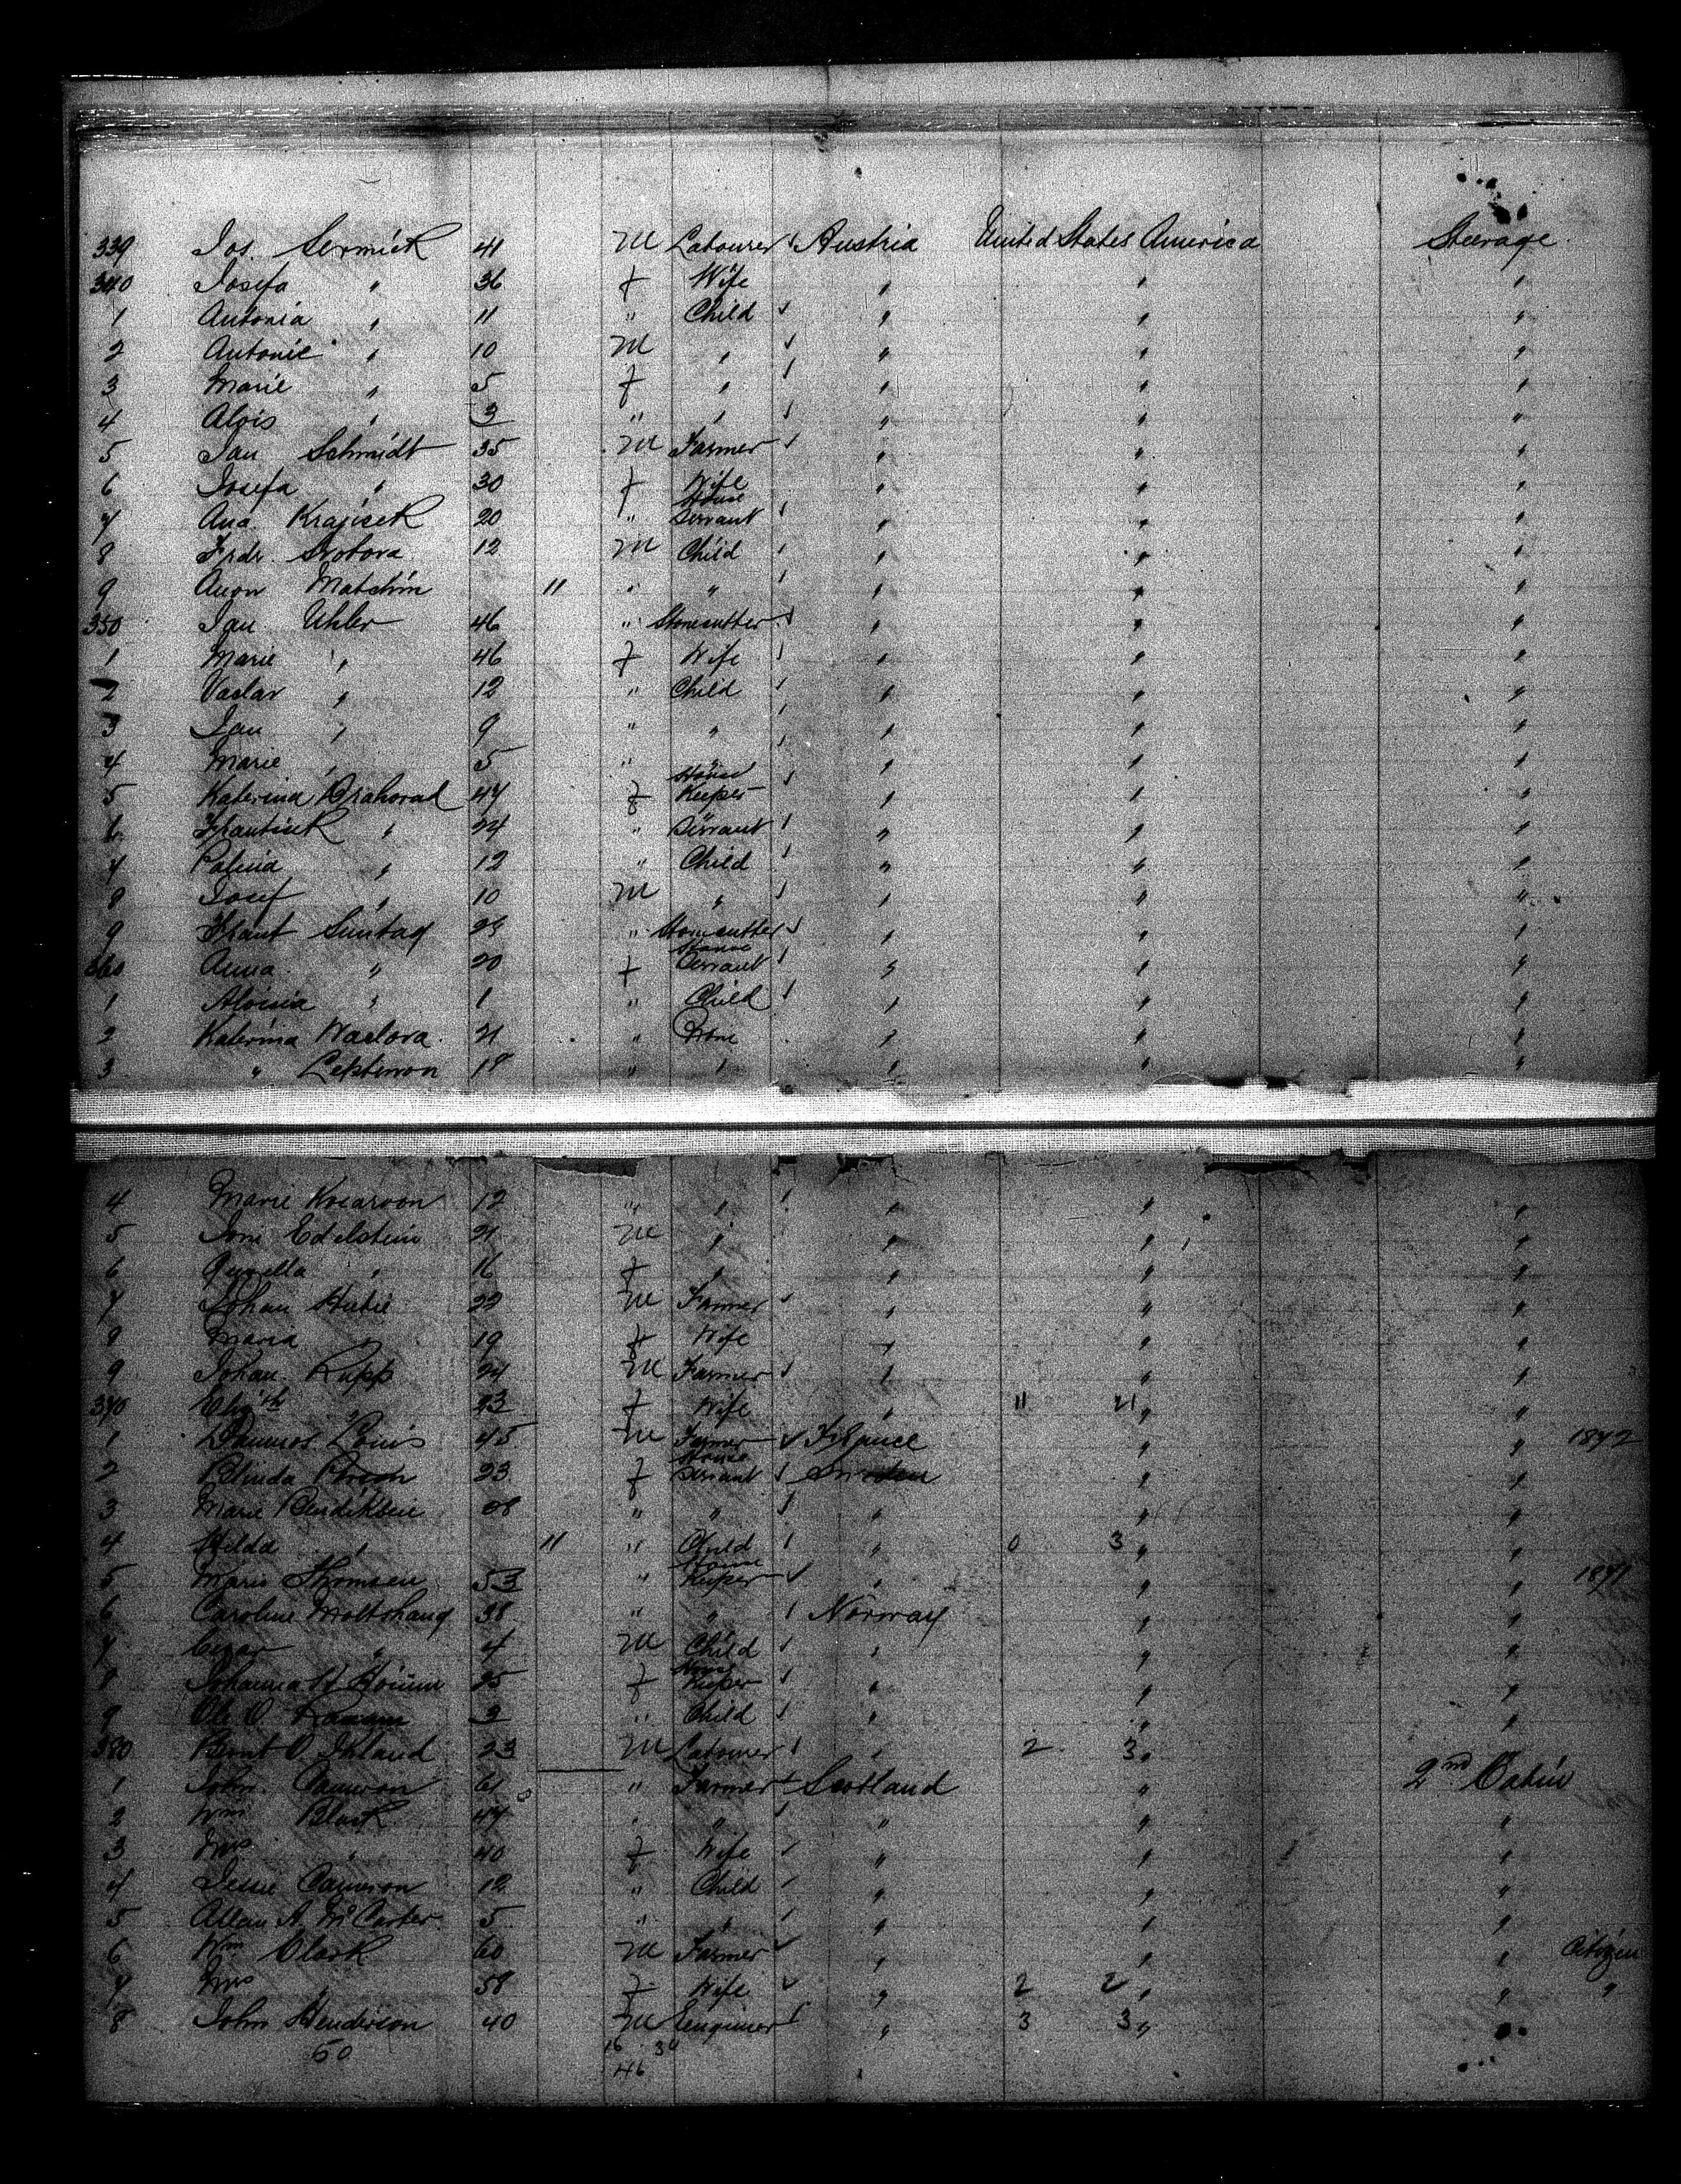 339 Jos. Sermick 41 M Labourer Austria United States America Steerage
340 Josefa " 36 f Wife " " "
1 Antonia " 11 " Child " " "
2 Antonie " 10 M " " " "
3 Marie " 5 f " " " "
4 Alois " 3 " " " " "
5 Jan Schmidt 35 M Farmer " " "
6 Josefa " 30 f Wife " " "
7 Ana. Krajicek 20 " House Servant " " "
8 Frdr. Svobova 12 M Child " " "
9 Matchin 11 " " " " "
350 Jan Uhler 46 " Stonecutter " " "
1 Marie " 46 f Wife " " "
2 Vaclav " 12 " Child " " "
3 Jan " 9 " " " " "
4 Marie " 5 " " " " "
5 Katerina Drahorad 47 f House Keeper " " "
6 Frantisek " 24 " Servant " " "
7 " 12 " Child " " "
8 Josef " 10 M " " " "
9 Frant Suntag " Stonecutter " " "
360 Anna " 20 f House Servant " " "
1 Aloisia " 1 " Child " " "
2 Katerina Waclova 21 " None " " "
3 " 18 " " " " "
4 Marie Kocaroon 12 " " " " "
5 Edelstein 21 M " " " "
6 " 16 f " " " "
7 Johan 22 M Farmer " " "
8 Maria " 19 f Wife " " "
9 Johan Rupp 24 M Farmer " " "
370 Elizth " 23 f Wife " 11 21 " "
1 Louis 45 M Farmer " " 1892
2 Blinda 23 f House Servant Sweden " "
3 Marie Bendiksen 28 " " " " "
4 Hilda " 11 " Child " 0 3 " "
5 Marie Thomsen 53 " House Keeper " " " 1891
6 Caroline Moltshaug 38 " " Norway " "
7 " 4 M Child " " "
8 Johanna 25 f House Keeper " " "
9 Ole O. 3 " Child " " "
380 Bernt O. Ikland 23 M Labourer " 2 3 " "
1 John Cameron 61 " Farmer Scotland " 2nd Cabin
2 Wm Black 47 " " " " "
3 Mrs " 40 f Wife " " "
4 Jessie Cameron 12 " Child " " "
5 Allan A. McCarter 5 " " " " "
6 Wm Clark 60 M Farmer " " " Citizen
7 Mrs " 58 f Wife " 2 2 " " "
8 John Henderson 40 M Engineer " 3 3 " "
50 16 34
46